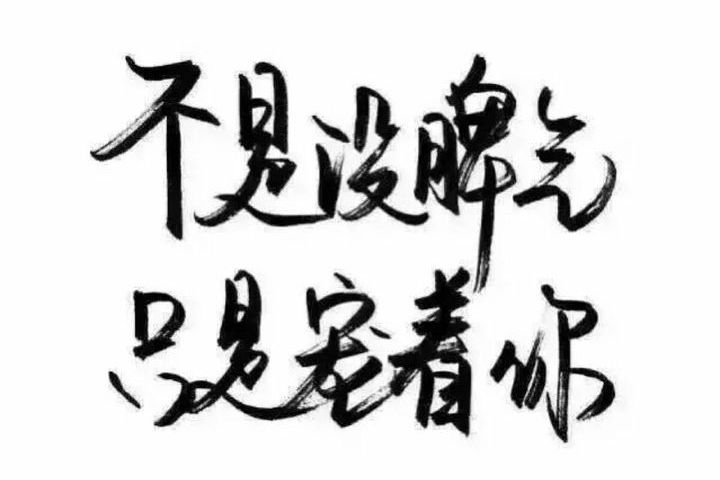 不是没脾气
只是宠着你